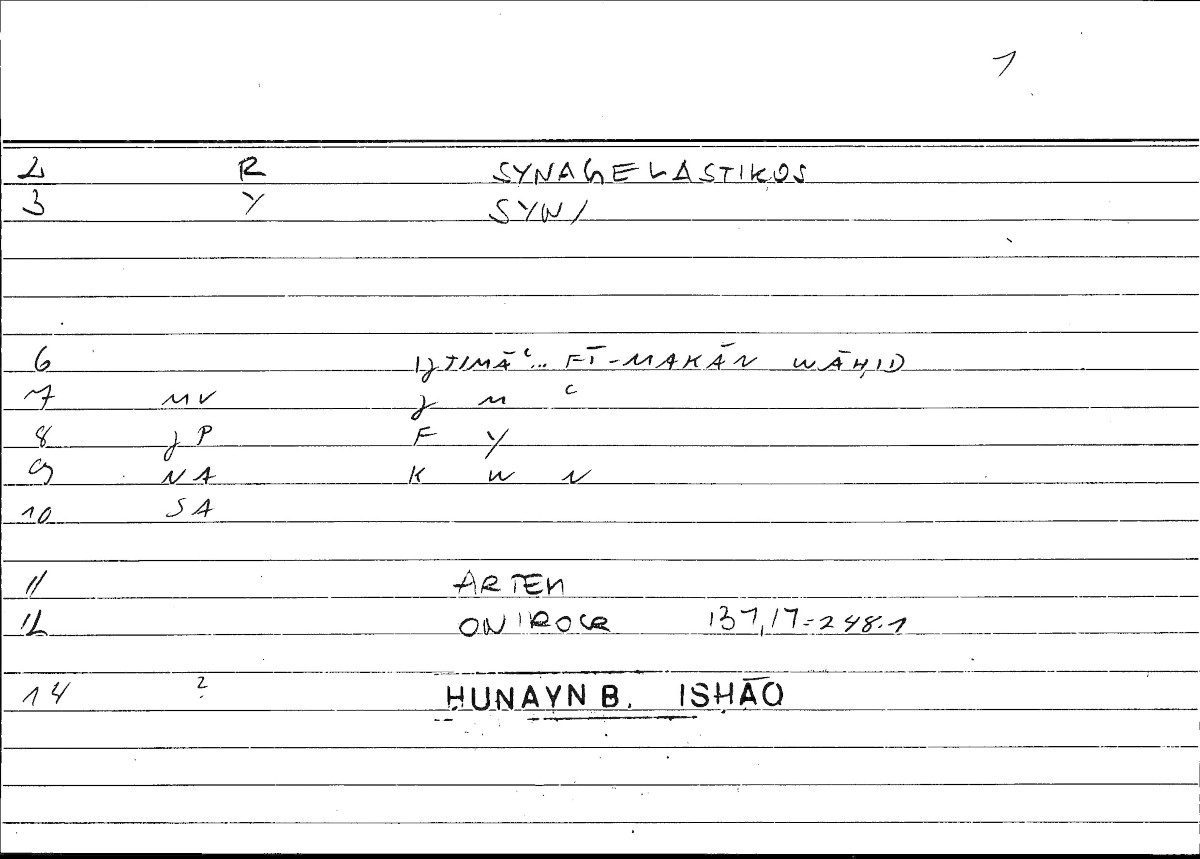 1
2 R SYNAGELASTIKOS
3 Y SYN/
6 IJTIMĀʿ... FĪ-MAKĀN WĀḤID
7 MV J M ʿ
8 JP F Y
9 NA K W N
10 SA
11 ARTEM
12 ONIROCR 137,17=248.1
14 ? ḤUNAYN B. ISḤĀQ